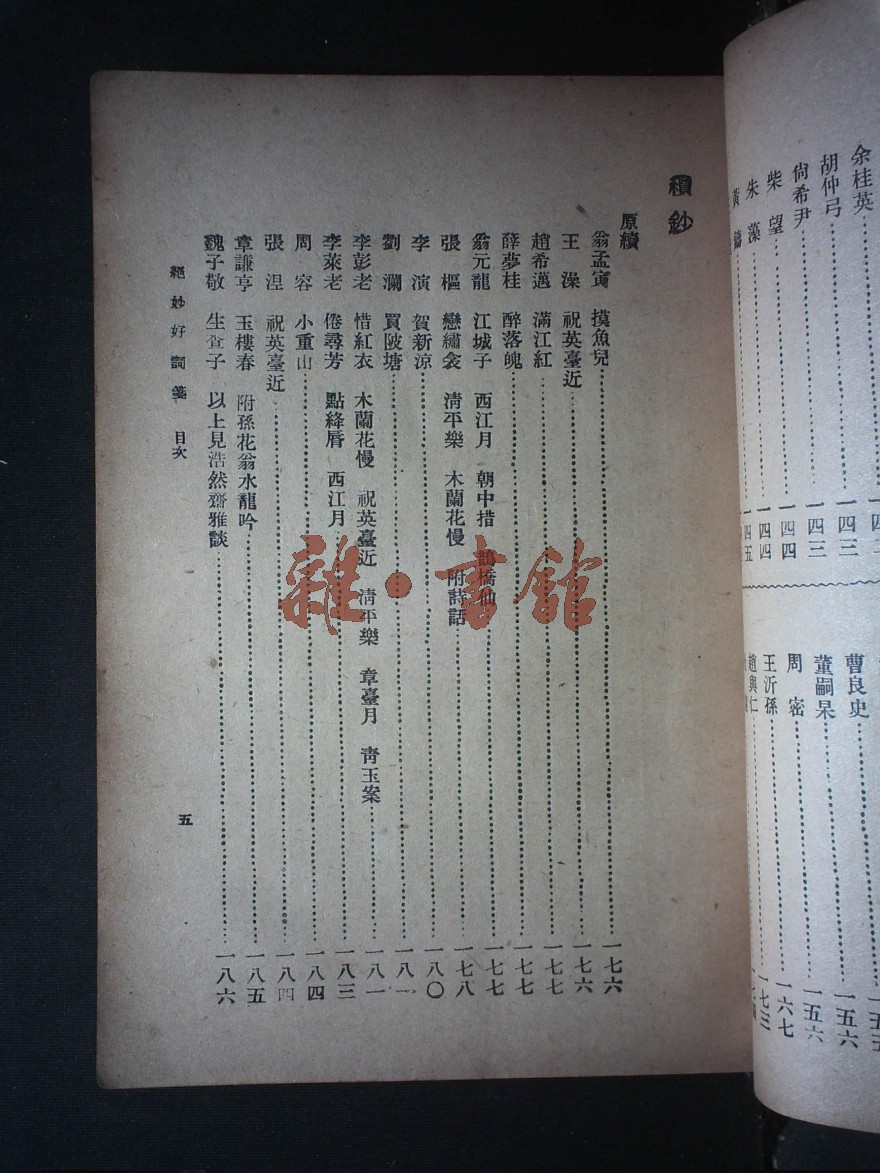 余桂英
胡仲弓……一四三
尙希尹……一四三
柴望……一四四
朱藻……一四四
曹良史……一五六
董嗣杲……一五六
周密……一六七
王沂孫……一七三
趙與仁
續鈔
原續
翁孟寅 摸魚兒……一七六
王澡 祝英臺近……一七六
趙希邁 滿江紅……一七七
薛夢桂 醉落魄……一七七
翁元龍 江城子 西江月 朝中措 鵲橋仙……一七七
張樞 戀繡衾 淸平樂 木蘭花慢 附詩話……一七八
李演 賀新涼……一八〇
劉瀾 買陂塘……一八一
李彭老 惜紅衣 木蘭花慢 祝英臺近 淸平樂 章臺月 靑玉案……一八一
李萊老 倦尋芳 點絳脣 西江月……一八三
周容 小重山……一八四
張涅 祝英臺近……一八四
章謙亨 玉樓春 附孫花翁水龍吟……一八五
魏子敬 生査子 以上見浩然齋雅談……一八六
絕妙好詞箋 目次
五
雜·書館